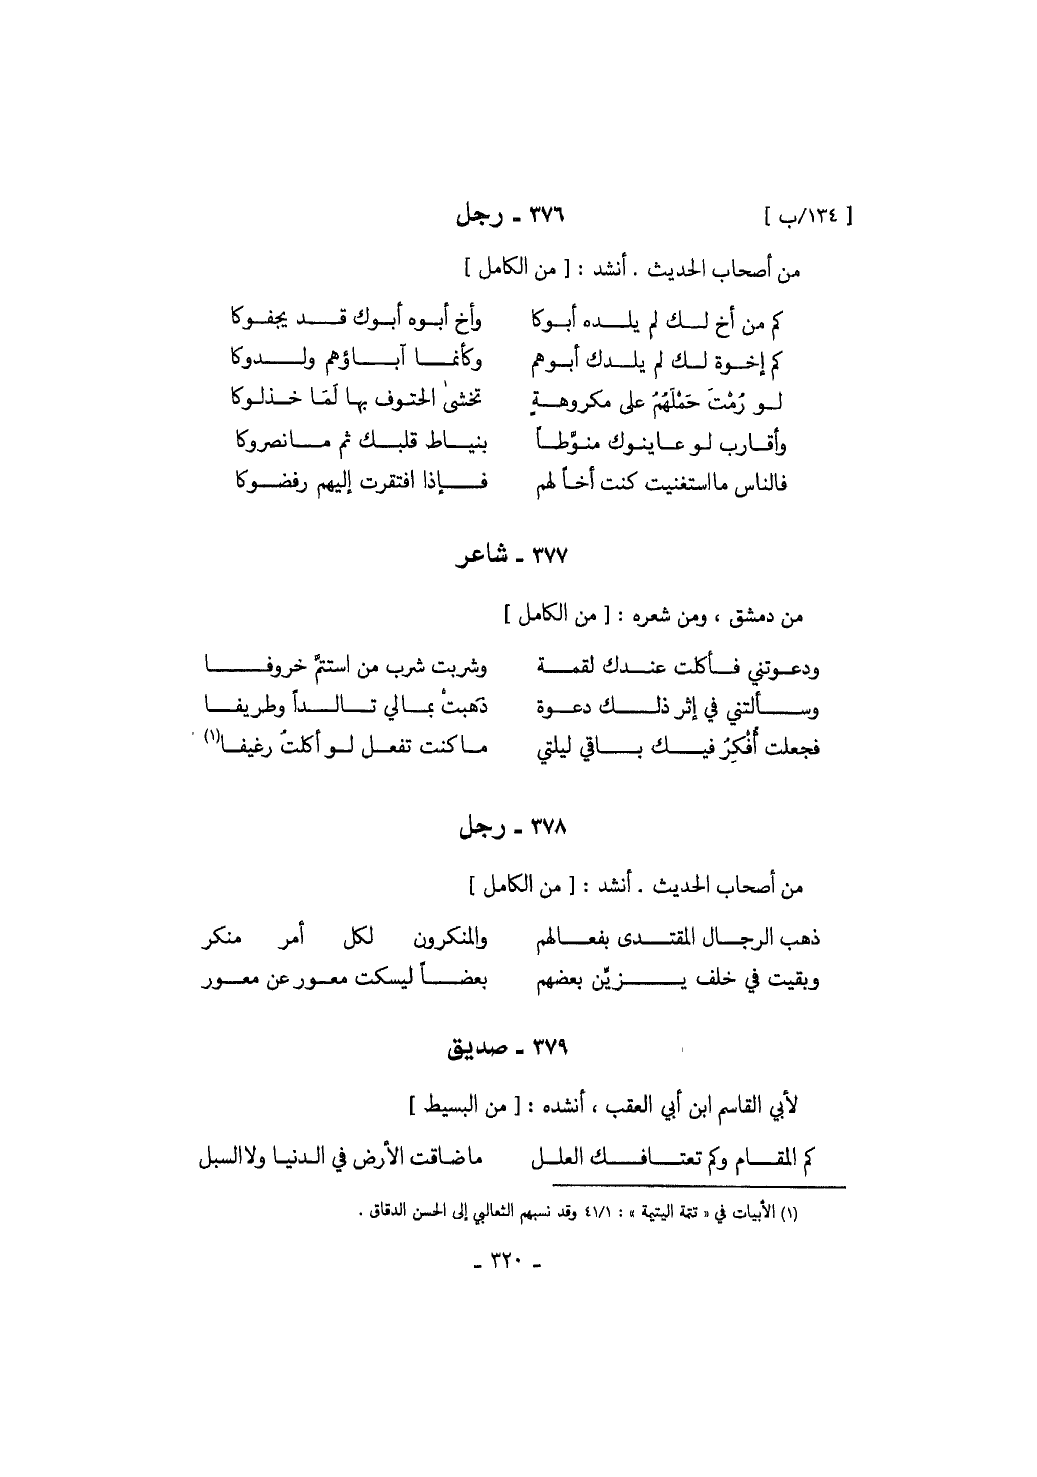 [ ١٣٤/ب ] ٣٧٦ - رجل
من أصحاب الحديث . أنشد : [ من الكامل ]
كم من أخ لك لم يلده أبوكا وأخ أبوه أبوك قد يجفوكا
كم إخوة لك لم يلدك أبوهم وكأنما آباؤهم ولدوكا
لو رُمْتَ حَمْلَهُمُ على مكروهةٍ تخشىٰ الحتوف بها لَمَا خذلوكا
وأقارب لو عاينوك منوَّطاً بنياط قلبك ثم ما نصروكا
فالناس ما استغنيت كنت أخاً لهم فإذا افتقرت إليهم رفضوكا
٣٧٧ - شاعر
من دمشق ، ومن شعره : [ من الكامل ]
ودعوتني فأكلت عندك لقمة وشربت شرب من استتمَّ خروفا
وسألتني في إثر ذلك دعوة ذهبتْ بمالي تالداً وطريفا
فجعلت أُفْكِرُ فيك باقي ليلتي ما كنت تفعل لو أكلتُ رغيفا(١)
٣٧٨ - رجل
من أصحاب الحديث . أنشد : [ من الكامل ]
ذهب الرجال المقتدى بفعالهم والمنكرون لكل أمر منكر
وبقيت في خلف يزيِّن بعضهم بعضاً ليسكت معور عن معور
٣٧٩ - صديق
لأبي القاسم ابن أبي العقب ، أنشده : [ من البسيط ]
كم المقام وكم تعتافك العلل ما ضاقت الأرض في الدنيا ولا السبل
(١) الأبيات في « تتمة اليتيمة » : ٤١/١ وقد نسبهم الثعالبي إلى الحسن الدقاق .
- ٣٢٠ -